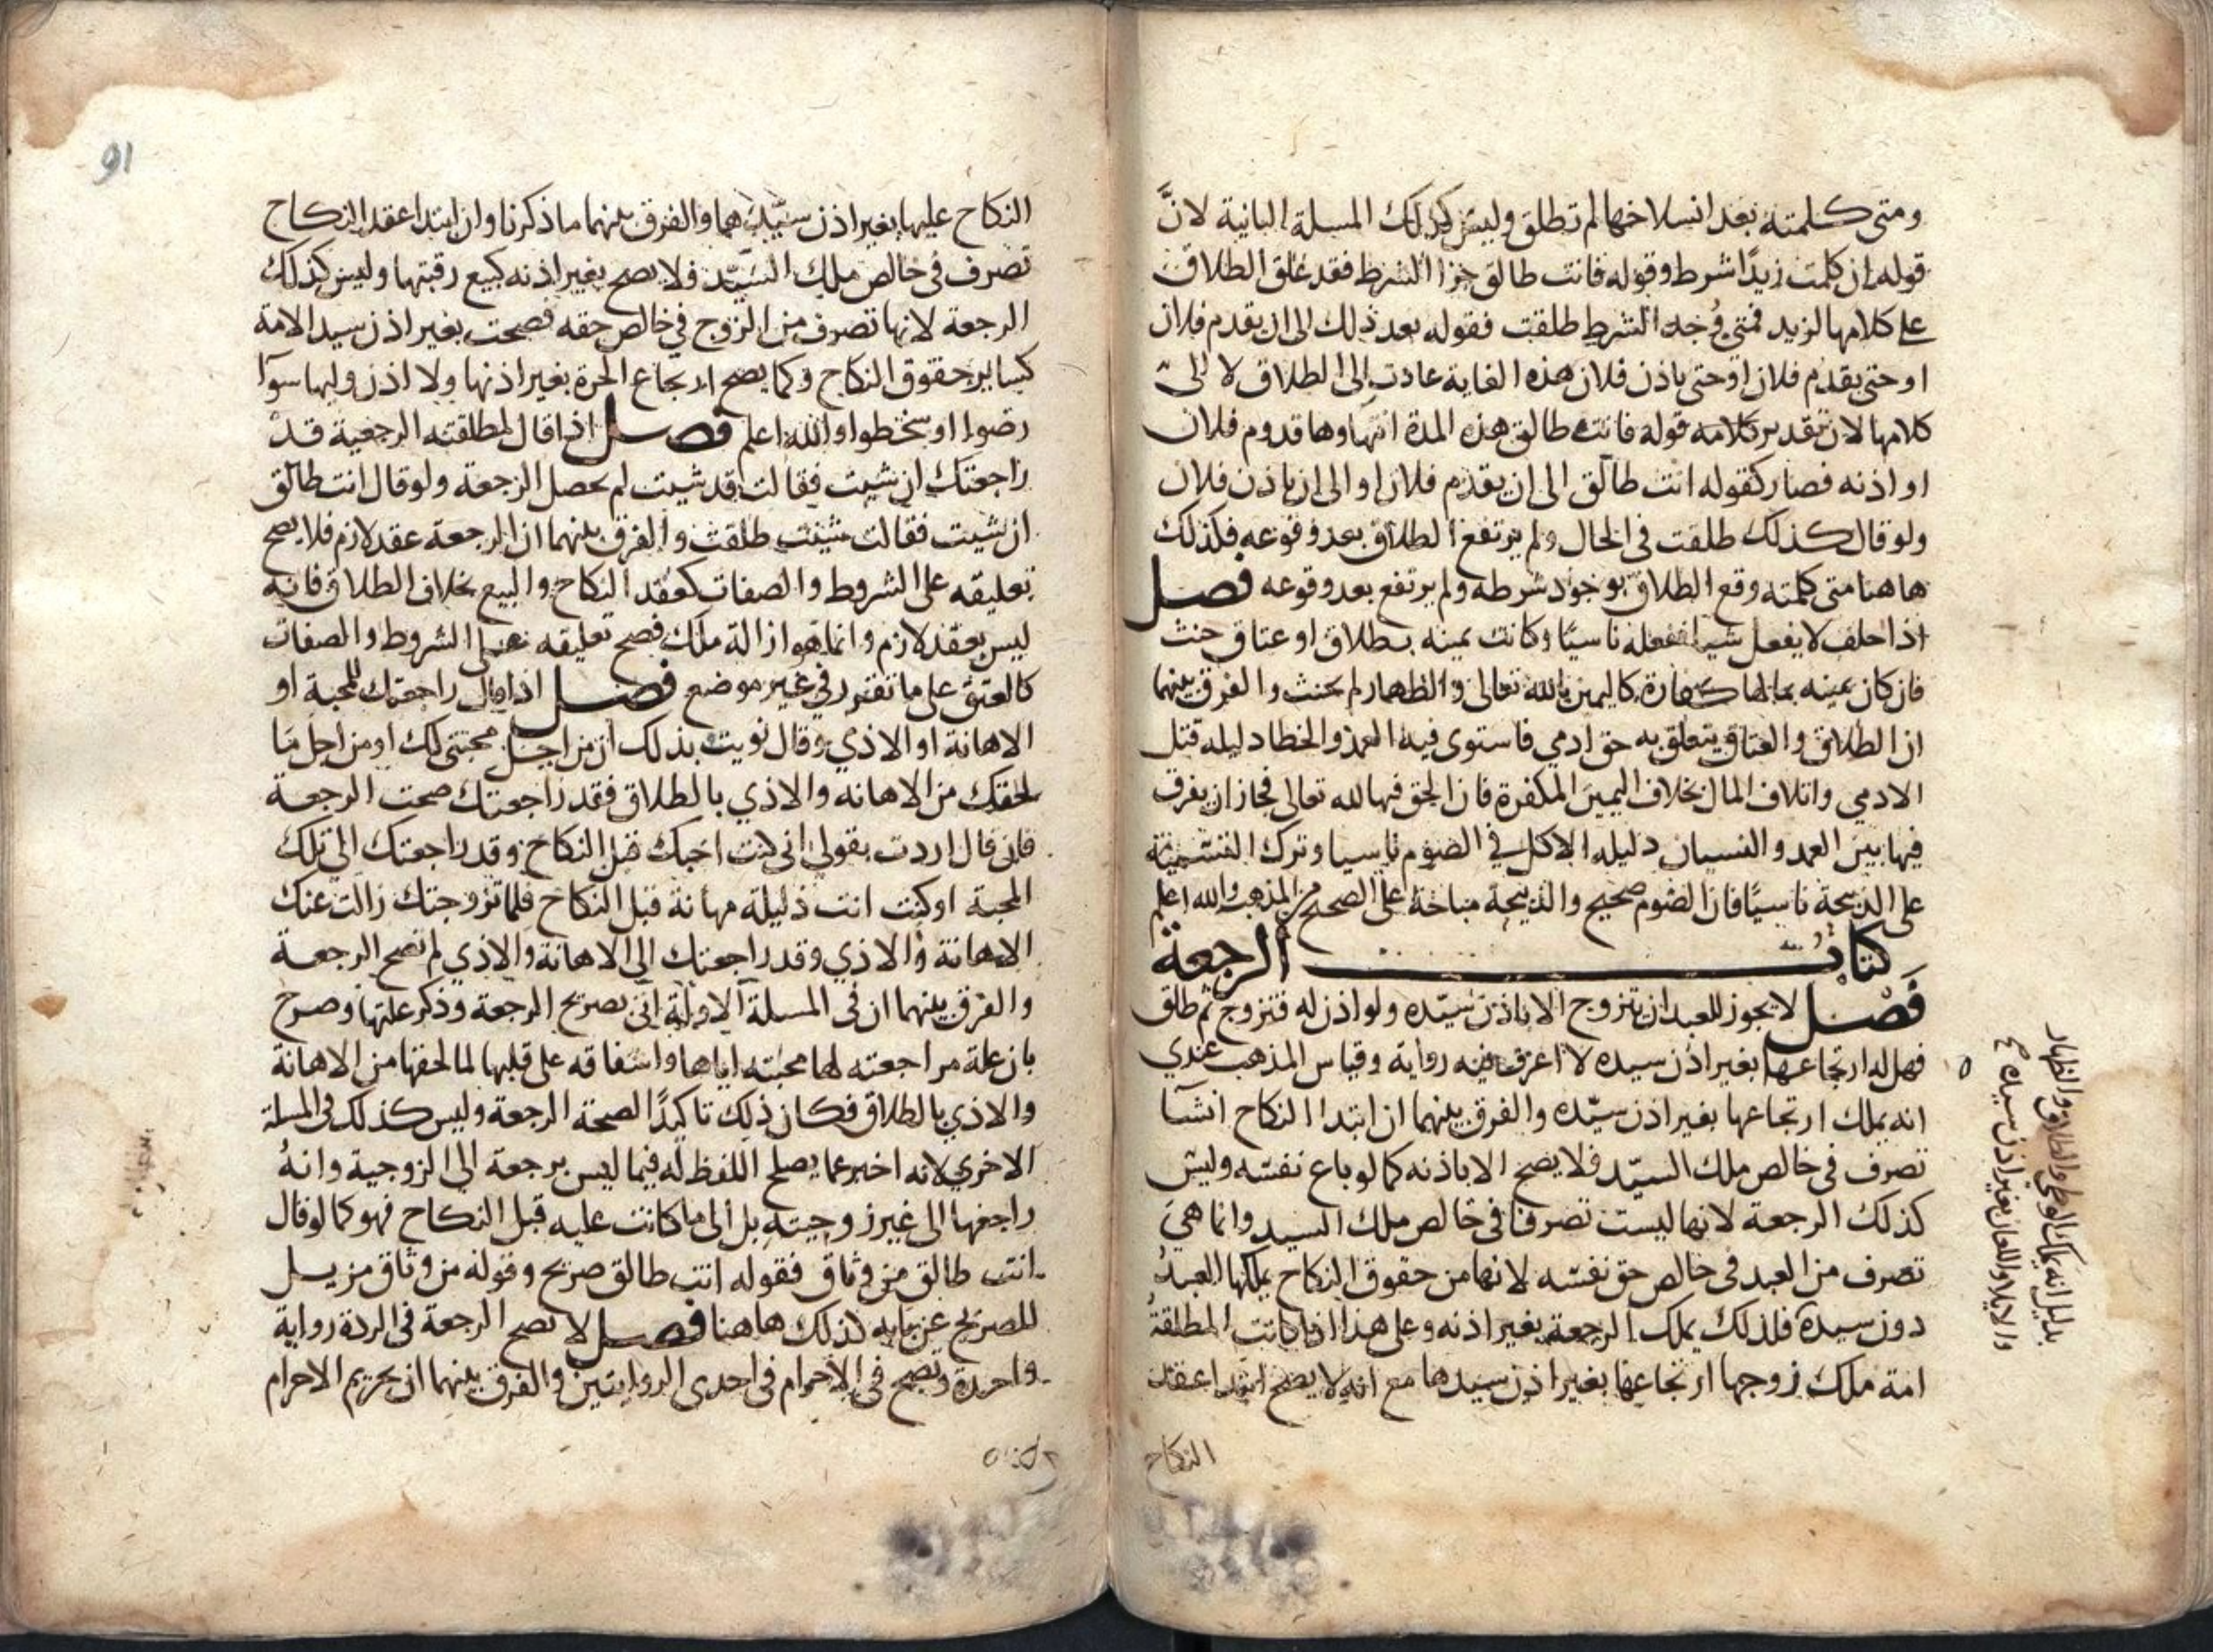 ومتى كلمته بعد انسلاخها لم تطلق وليس كذلك المسلة الثانية لانَّ
قوله ان كلمت زيدًا شرط وقوله فانت طالق جزا الشرط فقد علق الطلاق
على كلامها لزيد فمتى وُجد الشرط طلقت فقوله بعد ذلك الى ان يقدم فلان
او حتى يقدم فلان او حتى ياذن فلان هذه الغاية عادت الى الطلاق لا الى
كلامها لان تقدير كلامه قوله فانت طالق هذه المدة انتهاوها قدوم فلان
او اذنه فصار كقوله انت طالق الى ان يقدم فلان او الى ان ياذن فلان
ولو قال كذلك طلقت في الحال ولم يرتفع الطلاق بعد وقوعه فكذلك
هاهنا متى كلمته وقع الطلاق بوجود شرطه ولم يرتفع بعد وقوعه فصل
اذا حلف لا يفعل شيا ففعله ناسيًا وكانت يمينه بطلاق او عتاق حنث
فان كان يمينه بما لها كفارة كاليمين بالله تعالى والظهار لم يحنث والفرق بينهما
ان الطلاق والعتاق يتعلق به حق ادمي فاستوى فيه العمد والخطا دليله قتل
الادمي واتلاف المال بخلاف اليمين المكفرة فان الحق فيها لله تعالى فجاز ان يفرق
فيها بين العمد والنسيان دليله الاكل في الصوم ناسيا وترك التسمية
على الذبيحة ناسيًا فان الصوم صحيح والذبيحة مباحة على الصحيح من المذهب والله اعلم
كتاب الرجعة
فصل لا يجوز للعبد ان يتزوج الا باذن سيّده ولو اذن له فتزوج ثم طلق
فهل له ارتجاعها بغير اذن سيده لا اعرف فيه رواية وقياس المذهب عندي
انه يملك ارتجاعها بغير اذن سيّده والفرق بينهما ان ابتدا النكاح انشآ
تصرف في خالص ملك السيّد فلا يصح الا باذنه كما لو باع نفسه وليس
كذلك الرجعة لانها ليست تصرفا في خالص ملك السيد وانما هي
تصرف من العبد في خالص حق نفسه لانها من حقوق النكاح يملكها العبدُ
دون سيده فلذلك يملك الرجعة بغير اذنه وعلى هذا اذا كانت المطلقةُ
امة ملك زوجها ارتجاعها بغير اذن سيدها مع انه لا يصح ابتدا عقد
النكاح
بدليل انه يملك الوطي والطلاق والظهار
والايلا واللعان بغير اذن سيده صح
91
النكاح عليها بغير اذن سيّدها والفرق بينهما ما ذكرنا وان ابتدا عقد النكاح
تصرف في خالص ملك السيّد فلا يصح بغير اذنه كبيع رقبتها وليس كذلك
الرجعة لانها تصرف من الزوج في خالص حقه فصحت بغير اذن سيد الامة
كساير حقوق النكاح وكما يصح ارتجاع الحرة بغير اذنها ولا اذن وليها سوآ
رضوا او سخطوا والله اعلم فصل اذا قال لمطلقته الرجعية قد
راجعتك ان شيت فقالت قد شيت لم تحصل الرجعة ولو قال انت طالق
ان شيت فقالت شيت طلقت والفرق بينهما ان الرجعة عقد لازم فلا يصح
تعليقه على الشروط والصفات كعقد النكاح والبيع بخلاف الطلاق فانه
ليس بعقد لازم وانما هو ازالة ملك فصح تعليقه على الشروط والصفات
كالعتق على ما تقرر في غير موضع فصل اذا قال راجعتك للمحبة او
الاهانة او الاذي وقال نويت بذلك ان من اجل محبتي لك او من اجل ما
لحقك من الاهانه والاذي بالطلاق فقد راجعتك صحت الرجعة
فان قال اردت بقولي اني كنت احبك قبل النكاح وقد راجعتك الى تلك
المحبة او كنت انت ذليلة مهانة قبل النكاح فلما تزوجتك زالت عنك
الاهانة والاذي وقد راجعتك الى الاهانة والاذي لم تصح الرجعة
والفرق بينهما ان في المسلة الاولة اتى بصريح الرجعة وذكر علتها وصرح
بان علة مراجعته لها محبته اياها واشفاقه على قلبها لما لحقها من الاهانة
والاذي بالطلاق فكان ذلك تاكيدًا لصحة الرجعة وليس كذلك في المسلة
الاخري لانه اخبر عما يصلح اللفظ له فيما ليس برجعة الى الزوجية وانهُ
راجعها الى غير زوجيته بل الى ما كانت عليه قبل النكاح فهو كما لو قال
انت طالق من وثاق فقوله انت طالق صريح وقوله من وثاق مزيل
للصريح عن بابه كذلك هاهنا فصل لا تصح الرجعة في الردة رواية
واحدة وتصح في الاحرام في احدى الروايتين والفرق بينهما ان تحريم الاحرام